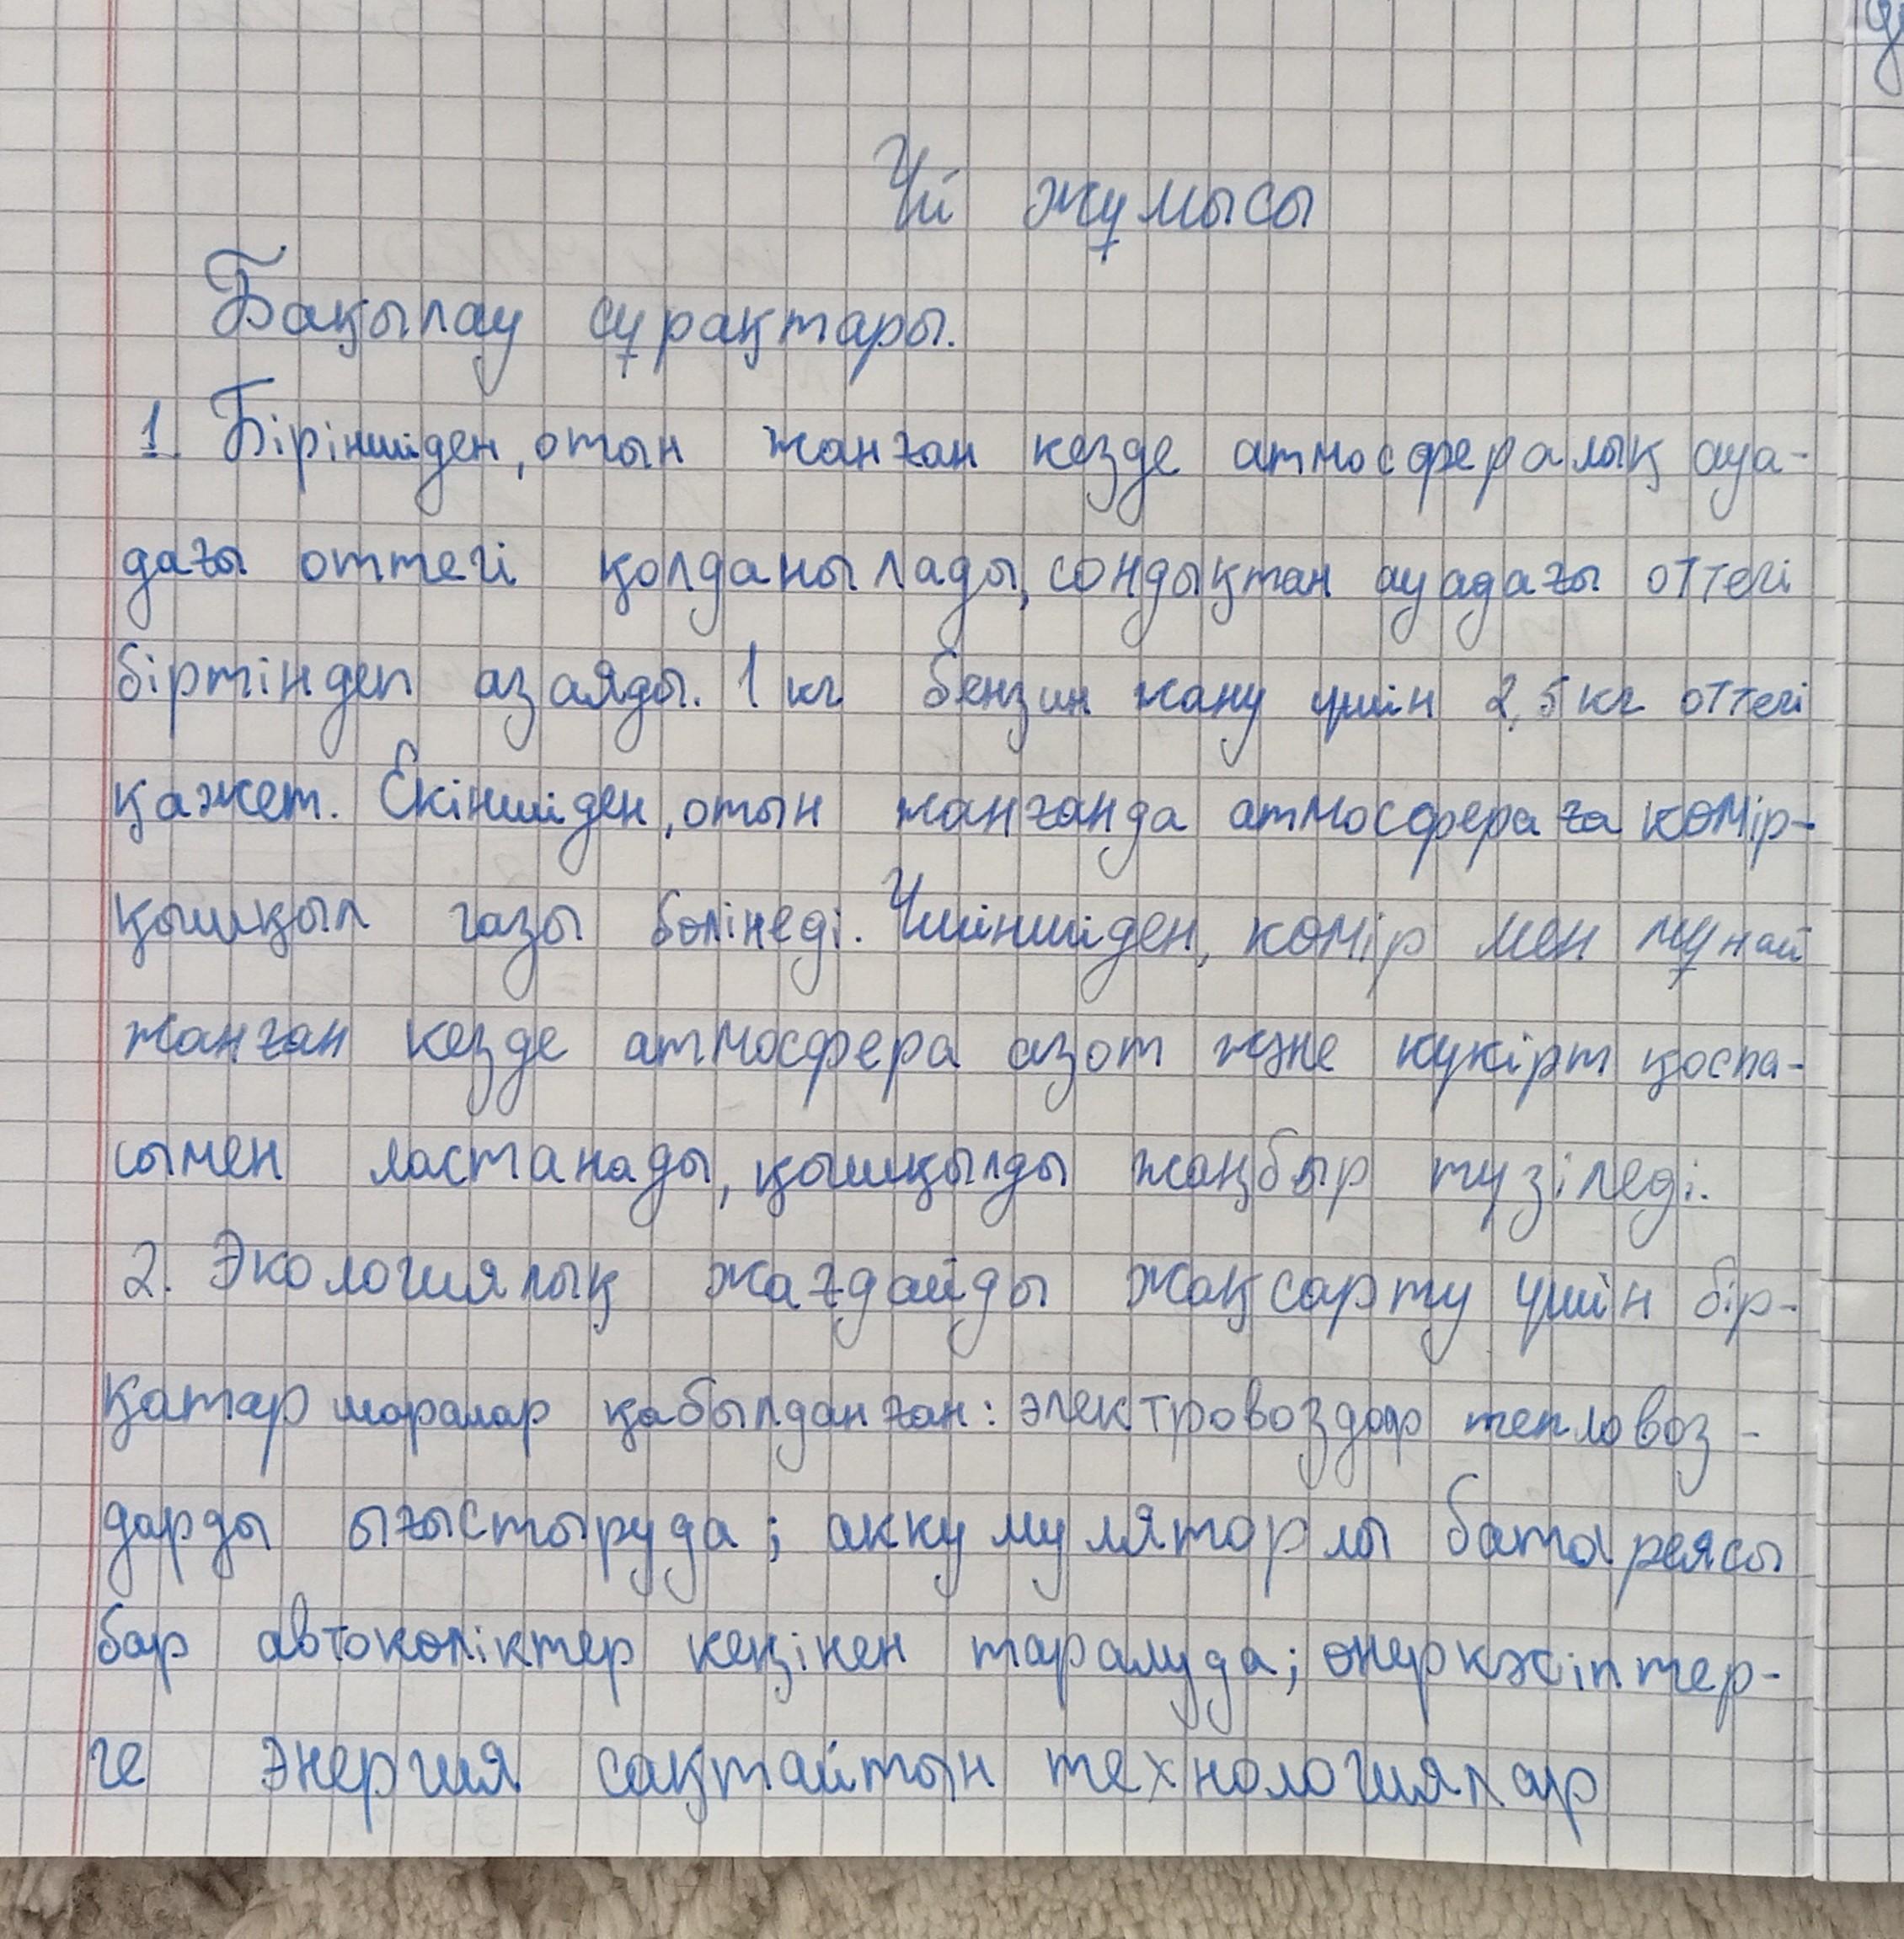 Үй жұмысы
Бақылау сұрақтары.
1. Біріншіден, отын жанған кезде атмосфералық ауа-
дағы оттегі қолданылады, сондықтан ауадағы оттегі
біртіндеп азаяды. 1 кг бензин жану үшін 2,5 кг оттегі
қажет. Екіншіден, отын жанғанда атмосфераға көмір-
қышқыл газы бөлінеді. Үшіншіден, көмір мен мұнай
жанған кезде атмосфера азот және күкірт қоспа-
сымен ластанады, қышқылды жаңбыр түзіледі.
2. Экологиялық жағдайды жақсарту үшін бір-
қатар шаралар қабылданған: электровоздар тепловоз-
дарды ығыстыруда; аккумуляторлы батареясы
бар автокөліктер кеңінен таралуда; өнеркәсіптер-
ге энергия сақтайтын технологиялар